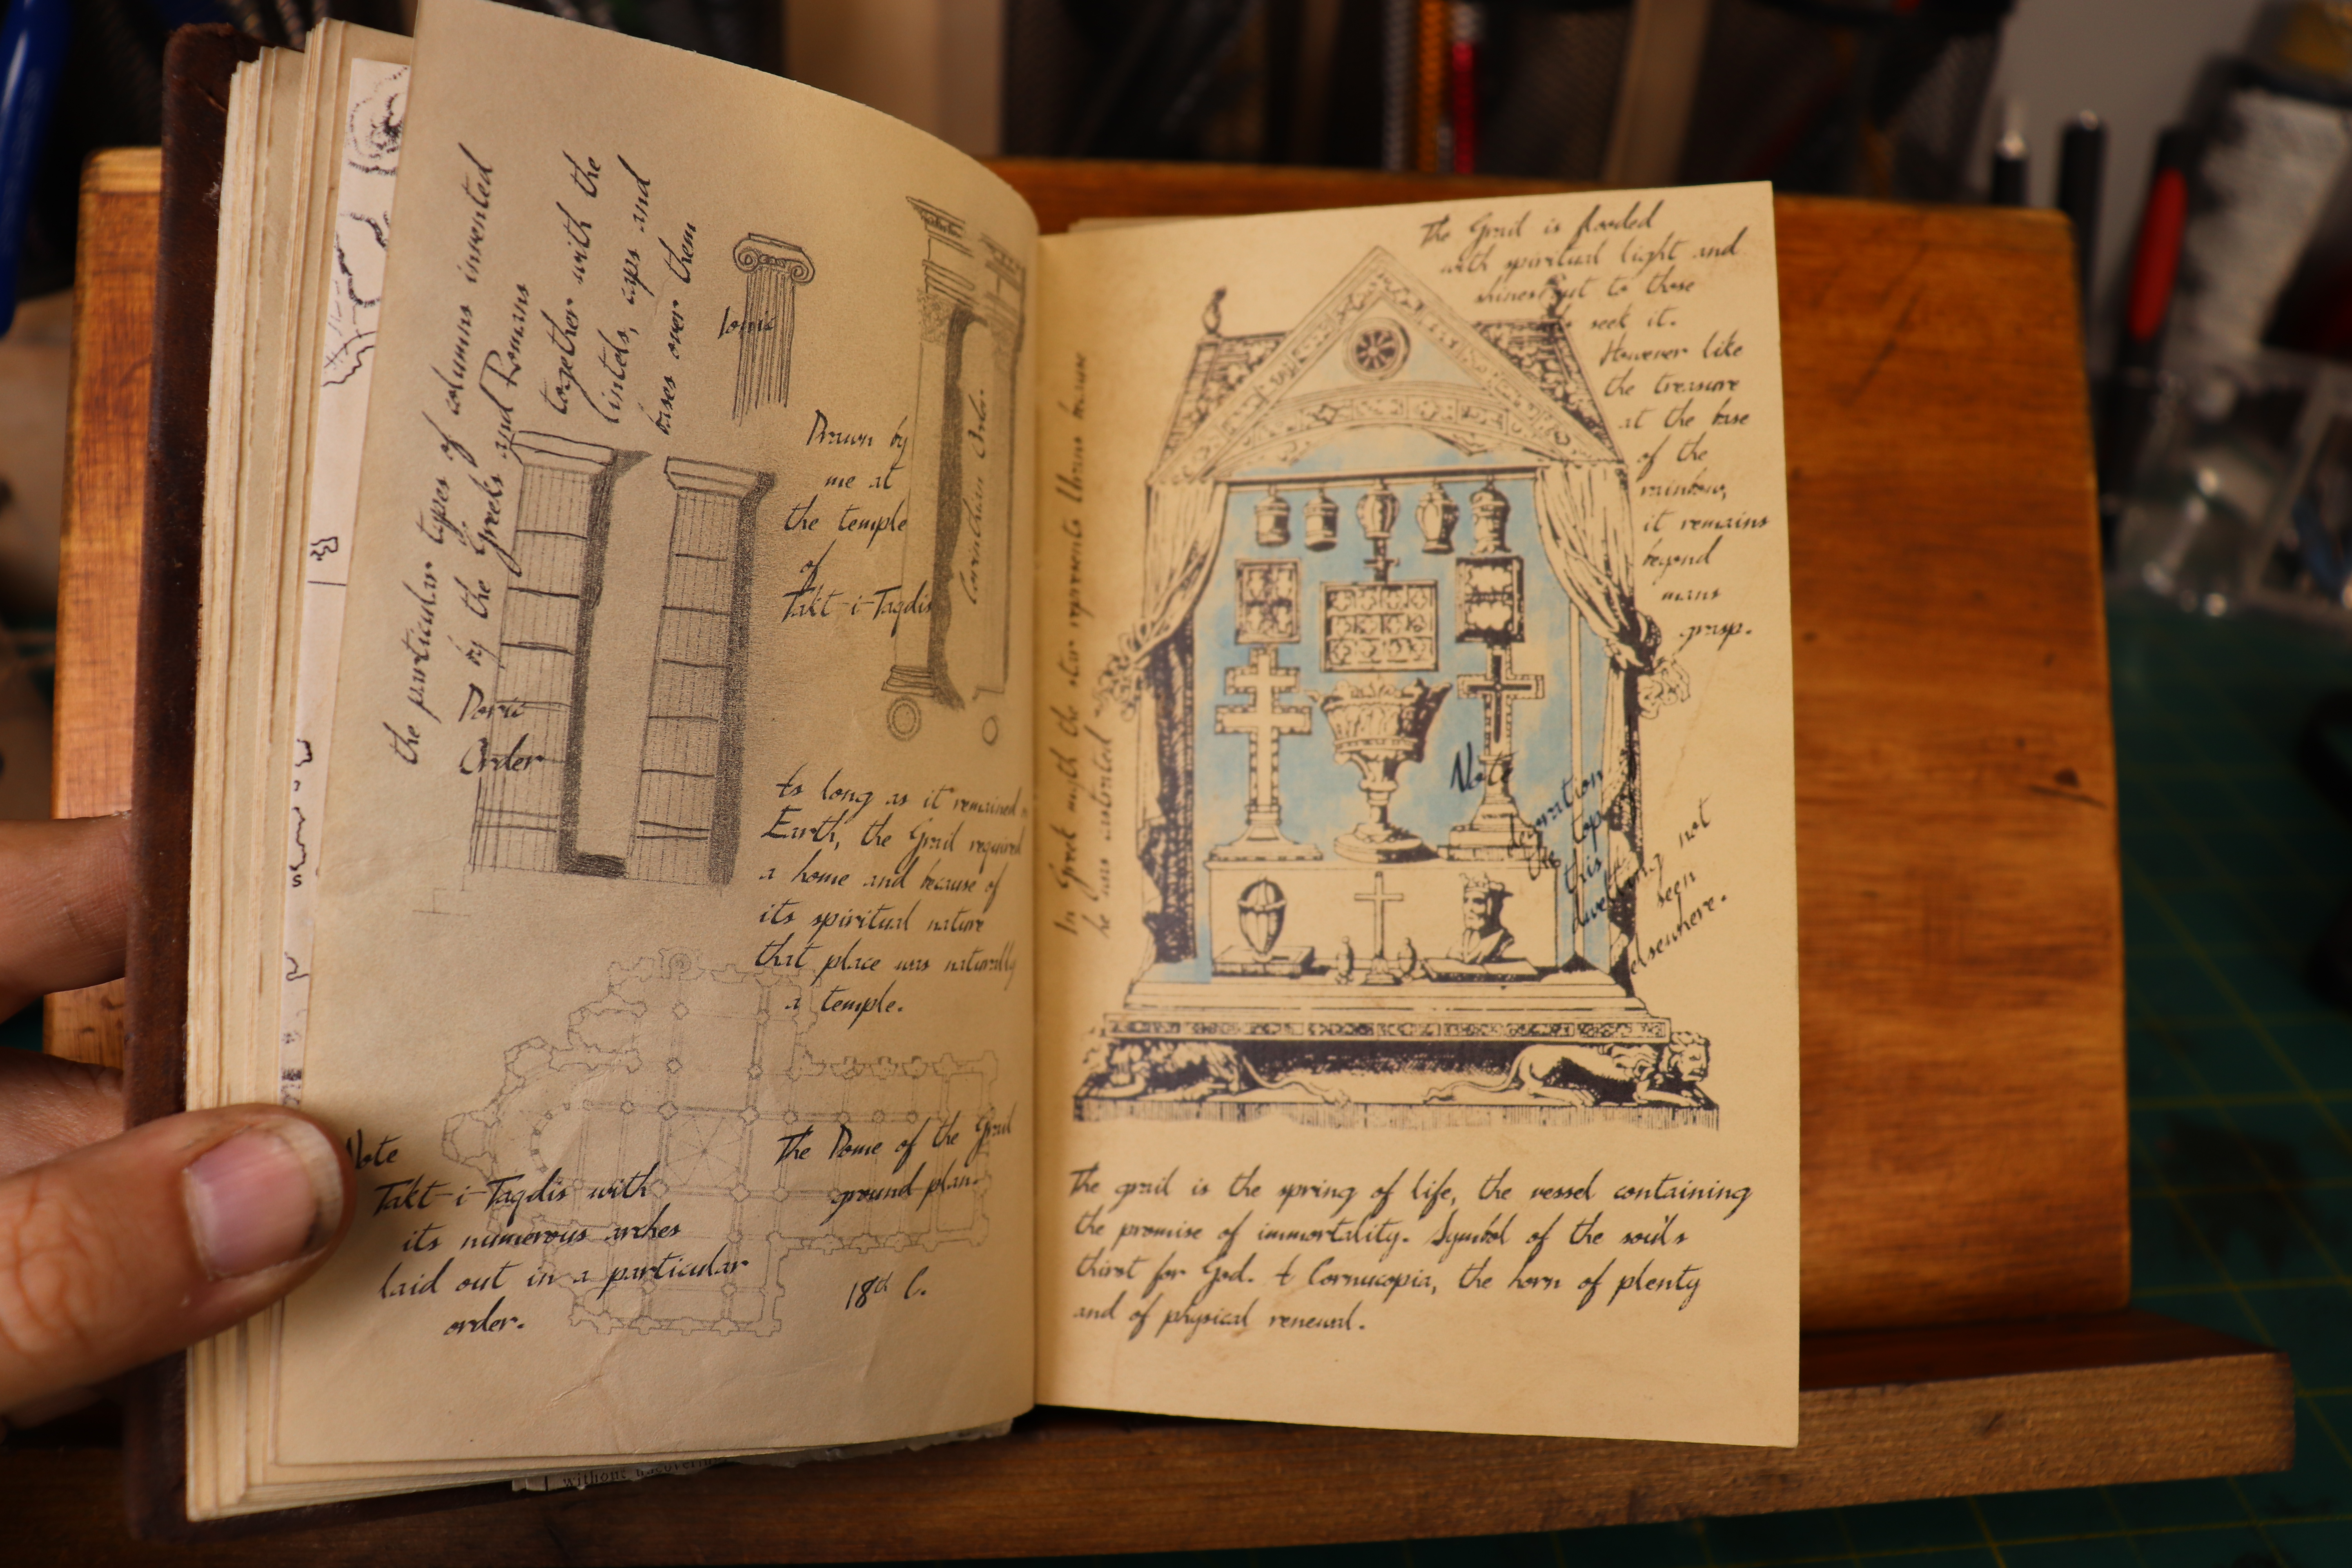 the particular types of columns invented
by the Greeks and Romans
together with the
lintels, caps and
bases over them
Ionic
Drawn by
me at
the temple
of
Takt-i-Taqdis
Corinthian Order.
Doric
Order
As long as it remained
Earth, the Grail required
a home and because of
its spiritual nature
that place was naturally
a temple.
Note
Takt-i-Taqdis with
its numerous arches
laid out in a particular
order.
The Dome of the Grail
ground plan.
18th C.
without uncoverin
In Greek myth the star represents
he was
The Grail is flooded
with spiritual light and
shines out to those
seek it.
However like
the treasure
at the base
of the
rainbow,
it remains
beyond
mans
grasp.
Note
decoration
the top
this
not
seen
elsewhere.
The grail is the spring of life, the vessel containing
the promise of immortality. Symbol of the soul's
thirst for God. A Cornucopia, the horn of plenty
and of physical renewal.